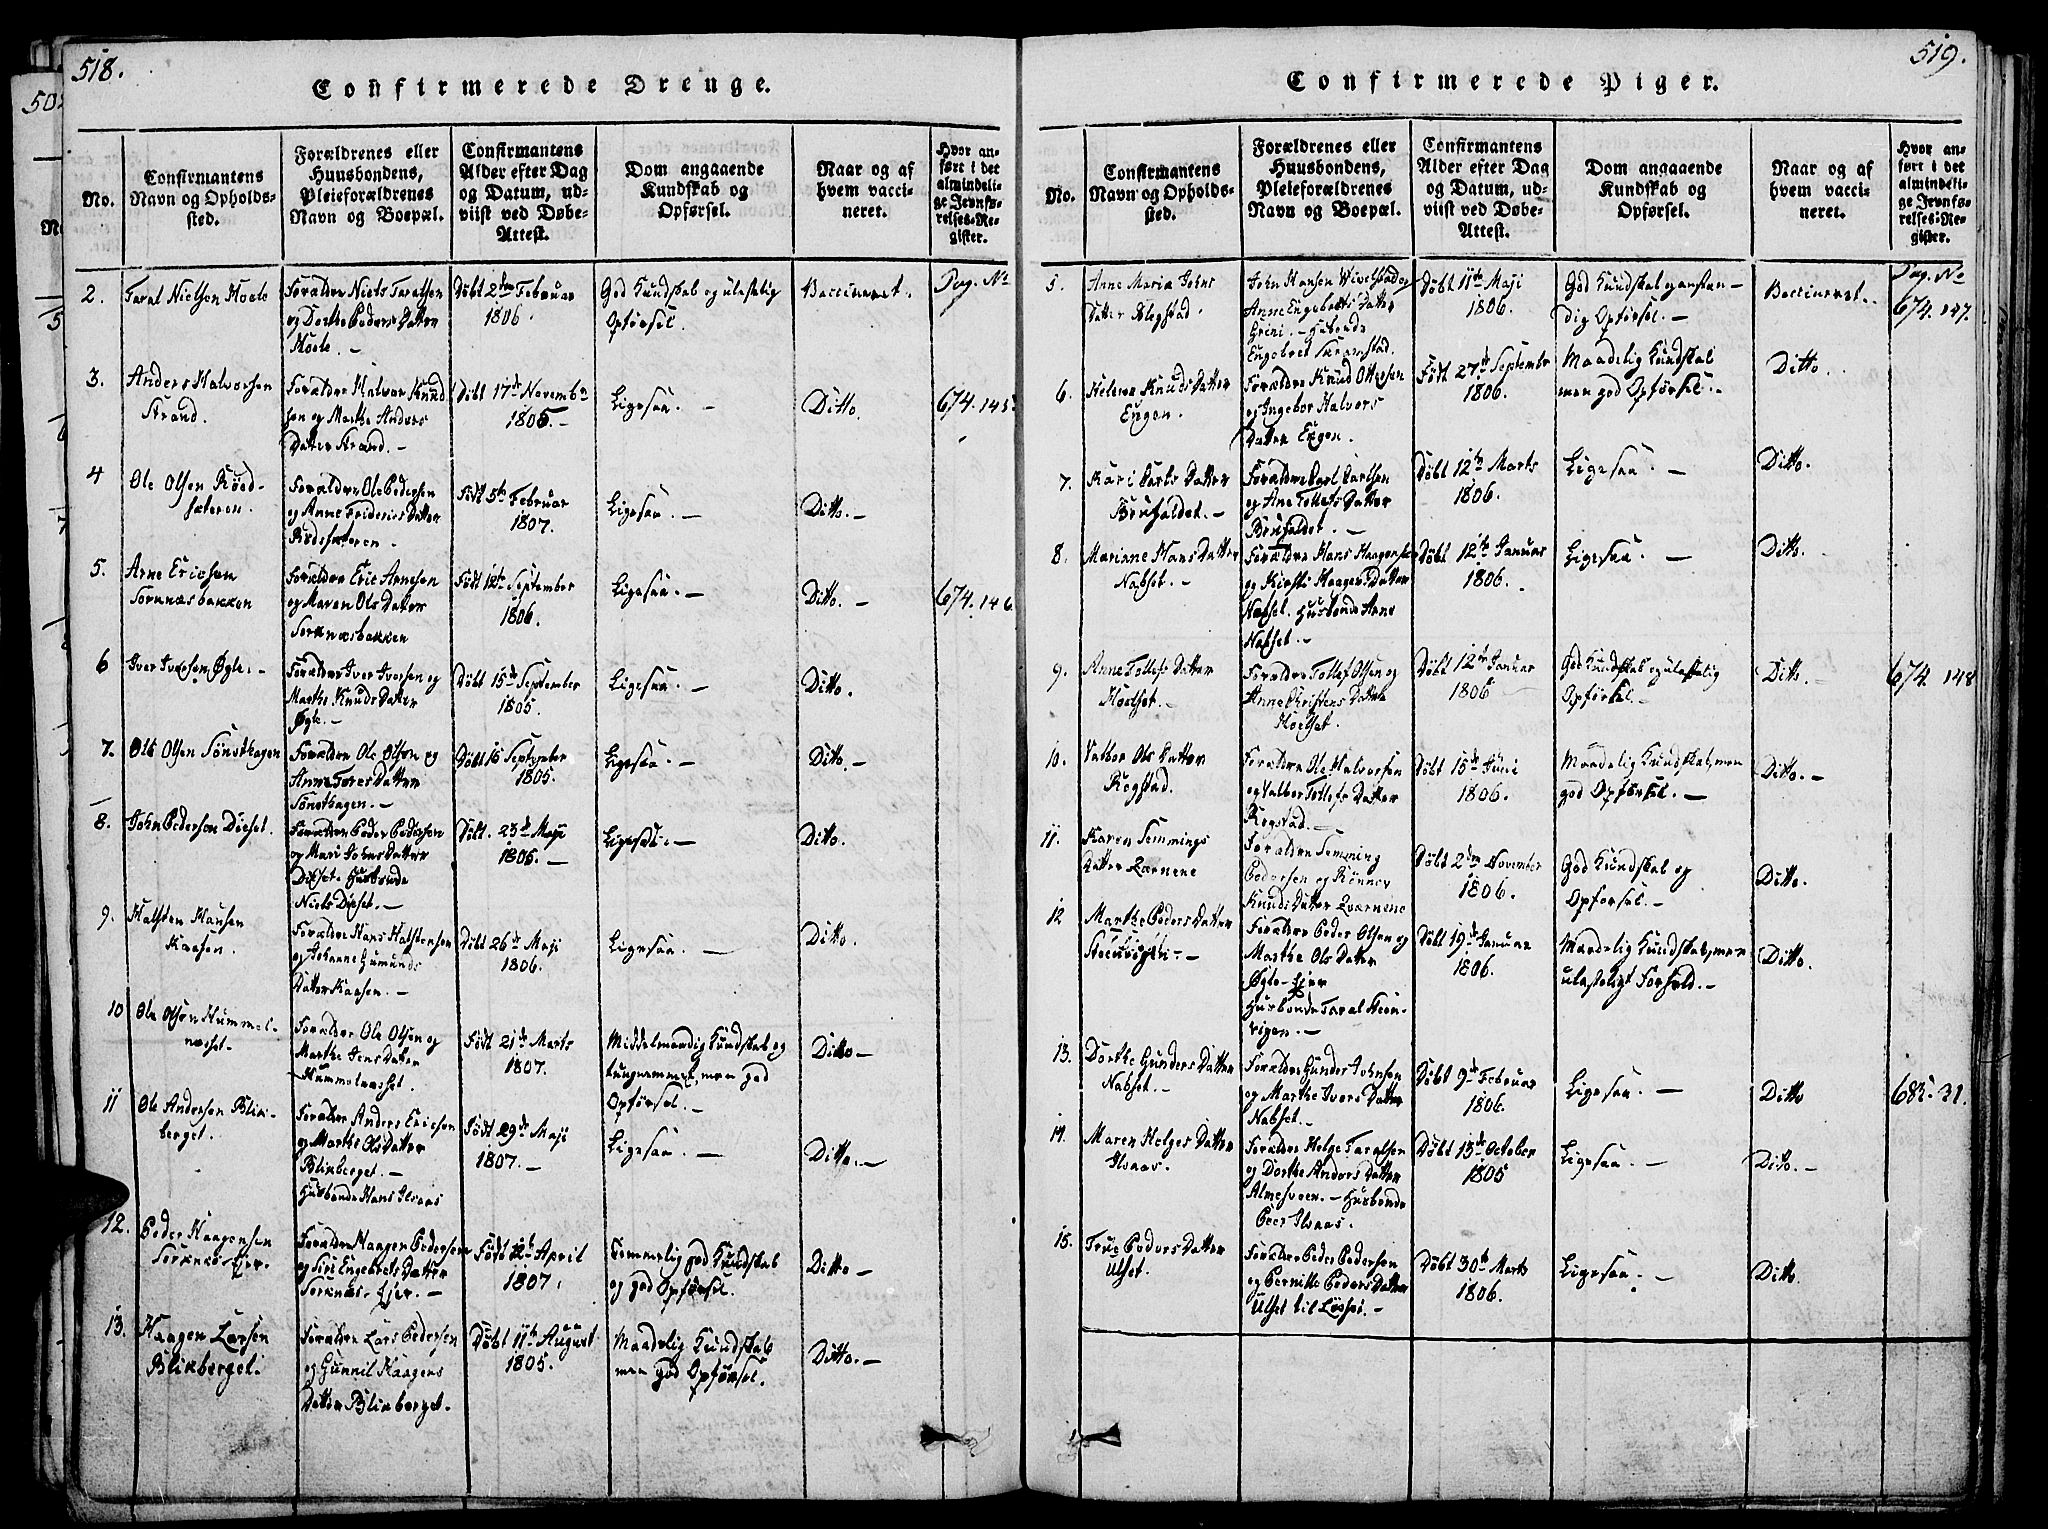 518.
Confirmerede Drenge.
No.
Confirmantens
Navn og Opholds-
sted.
Forældrenes eller
Huusbondens,
Pleieforældrenes
Navn og Boepæl.
Confirmantens
Alder efter Dag
og Datum, ud-
viist ved Døbe-
Attest.
Dom angaaende
Kundskab og
Opførsel.
Naar og af
hvem vacci-
neret.
Hvor an-
ført i det
almindeli-
ge Jevnfø-
relses-Re-
gister.
2.
Taral Nielsen Hoele
Forældre Niels Taralsen
og Dorthe Peders Datter
Hoele. -
Døbt 2den Februar
1806.
God Kundskab og ulastelig
Opførsel.
Vaccineret.
Pag. No
3.
Anders Halvorsen
Strand.
Forældre Halvor Knud
sen og Marthe Anders
Datter Strand. -
Døbt 17de Novembr
1805. -
Ligesaa. -
Ditto.
674. 145.
4
Ole Olsen Rød-
sæteren.
Forældre Ole Pedersen
og Anne Friderics Datter
Rødesæteren. -
Født 5te Februar
1807.
Ligesaa. -
Ditto. -
5.
Arne Ericsen
Sorknæsbakken
Forældre Eric Arnesen
og Maren Ols Datter
Sorknæsbakken
Født 12te September
1806.
Ligesaa. -
Ditto. -
674. 146.
6
Iver Iversen Øgle. -
Forældre Iver Iversen og
Marthe Knuds Datter
Øgle. -
Døbt 15de September
1805.
Ligesaa. -
Ditto.
7.
Ole Olsen Sønsthagen
Forældre Ole Olsen og
Anne Tores Datter
Sønsthagen. -
Døbt 15 September
1805.
Ligesaa. -
Ditto. -
8.
John Pedersen Dieset.
Forældre Peder Pedersen
og Mari Johns Datter
Diset. Husbonde
Niels Dieset. -
Døbt. 23de Maji
1806. -
Ligesaa. -
Ditto.
9.
Halsten Hansen
Kaasen.
Forældre Hans Halstensen
og Johanne Gumunds
Datter Kaasen. -
Døbt 26de Maji
1806.
Ligesaa. -
Ditto.
10
Ole Olsen Hummel-
næset.
Forældre Ole Olsen og
Marthe Jens Datter
Hummelnæset.
Født 21de Marts
1807.
Middelmaadig Kundskab og
tungnemmet, men god
Opførsel. -
Ditto -
11
Ole Andersen Blik-
berget.
Forældre Anders Ericsen
og Marthe Ols Datter
Blikberget. -
Husbonde Hans Ilvaas
Født 29de Maji
1807. -
Ligesaa. -
Ditto. -
12.
Peder Haagensen
Sorknæs-Ejer.
Forældre Haagen Pedersen
og Siri Engebrets Datter
Sorknæs-Ejer. -
Født 12te April
1807.
Temmelig god Kundskab
og god Opførsel.
Ditto -
13.
Haagen Larsen
Blikberget.
Forældre Lars Pedersen
og Gunnil Haagens
Datter Blikberget.
Døbt 11te August
1805.
Maadelig Kundskab
men god Opførsel.
Ditto. -
519.
Confirmerede Piger.
No.
Confirmantens
Navn og Opholds-
sted.
Forældrenes eller
Huusbondens,
Pleieforældrenes
Navn og Boepæl.
Confirmantens
Alder efter Dag
og Datum, ud-
viist ved Døbe-
Attest.
Dom angaaende
Kundskab og
Opførsel.
Naar og af
hvem vacci-
neret.
Hvor an-
ført i det
almindeli-
ge Jevnfø-
relses-Re-
gister.
5.
Anne Maria Johns
Datter Blegstad.
John Hansen Wivelstad og
Anne Engebrets Datter
Grini. - Husbonde
Engebret Skramstad.
Døbt 11te Maji
1806.
God Kundskab og anstæn-
dig Opførsel. -
Vaccineret.
Pag. No
674. 147.
6.
Helene Knuds Datter
Eugen.
Forældre Knud Ottersen
og Ingebor Halvors
Datter Eugen.
Født 27de September
1806.
Maadelig Kundskab
men god Opførsel. -
Ditto
7.
Kari Carls Datter
Brufaldet. -
Forældre Carl Carlsen
og Ane Tollefs Datter
Brufaldet. -
Døbt 12te Marts
1806.
Ligesaa. -
Ditto.
8.
Marinne Hans Datter
Nabset. -
Forældre Hans Haagensen
og Kirsti Haagens Datter
Næbset. Husbonde Arne
Nabset. -
Døbt 12te Januar
1806.
Ligesaa. -
Ditto.
9.
Anne Tollefs Datter
Hoelset. -
Forældre Tollef Olsen og
Anne Christens Datter
Hoelset.
Døbt 12te Januar
1806
God Kundskab og ulastelig
Opførsel. -
Ditto. -
674. 148
10.
Valbor Ols Datter
Rogstad.
Forældre Ole Halvorsen
og Valber Tollefs Datter
Rogstad. -
Døbt 15de Juni
1806.
Maadelig Kundskab, men
god Opførsel. -
Ditto. -
11.
Karen Semmings
Datter Qværnene
Forældre Semming
Pedersen og Rønnev
Knuds Datter Qværnene
Døbt 2den November
1806.
God Kundskab og
Opførsel. -
Ditto.
12
Marthe Peders Datter
Steenvigen. -
Forældre Peder Olsen og
Marthe Ols Datter
Øgle-Ejer
Husbonde Taral Steen-
vigen. -
Døbt 19de Januar
1806.
Maadelig Kundskab, men
ulasteligt Forhold. -
Ditto.
13.
Dorthe Gunders Datter
Nabset. -
Forældre Gunder Johnsen
og Marthe Ivers Datter
Nabset. -
Døbt 9de Februar
1806.
Ligesaa. -
Ditto
685. 31.
14.
Maren Helges Datter
Ilvaas.
Forældre Helge Taralsen
og Dorthe Anders Datter
Almesveen. - Husbonde
Peer Ilvaas.
Døbt 13de October
1805
Ligesaa. -
Ditto. -
15.
True Peders Datter
Ulset.
Forældre Peder Pedersen
og Pernille Peders Datter
Ulset til Løsset. -
Døbt 30te Marts
1806.
Ligesaa. -
Ditto.